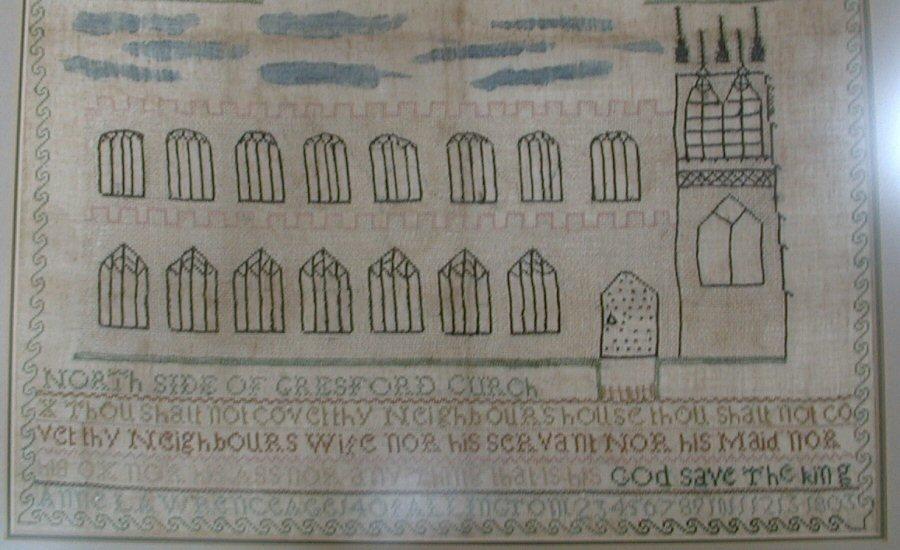 NORTh SIDE OF GRESFORD CURCh
X Thou shalt not covet thy Neighbours house thou shalt not co
vet thy Neighbours Wife nor his servant Nor his Maid nor
his ox nor his Ass nor any thing that is his God save The king
ANNE LAWRENCE AGE 14 of ALLINGTON 1 2 3 4 5 6 7 8 9